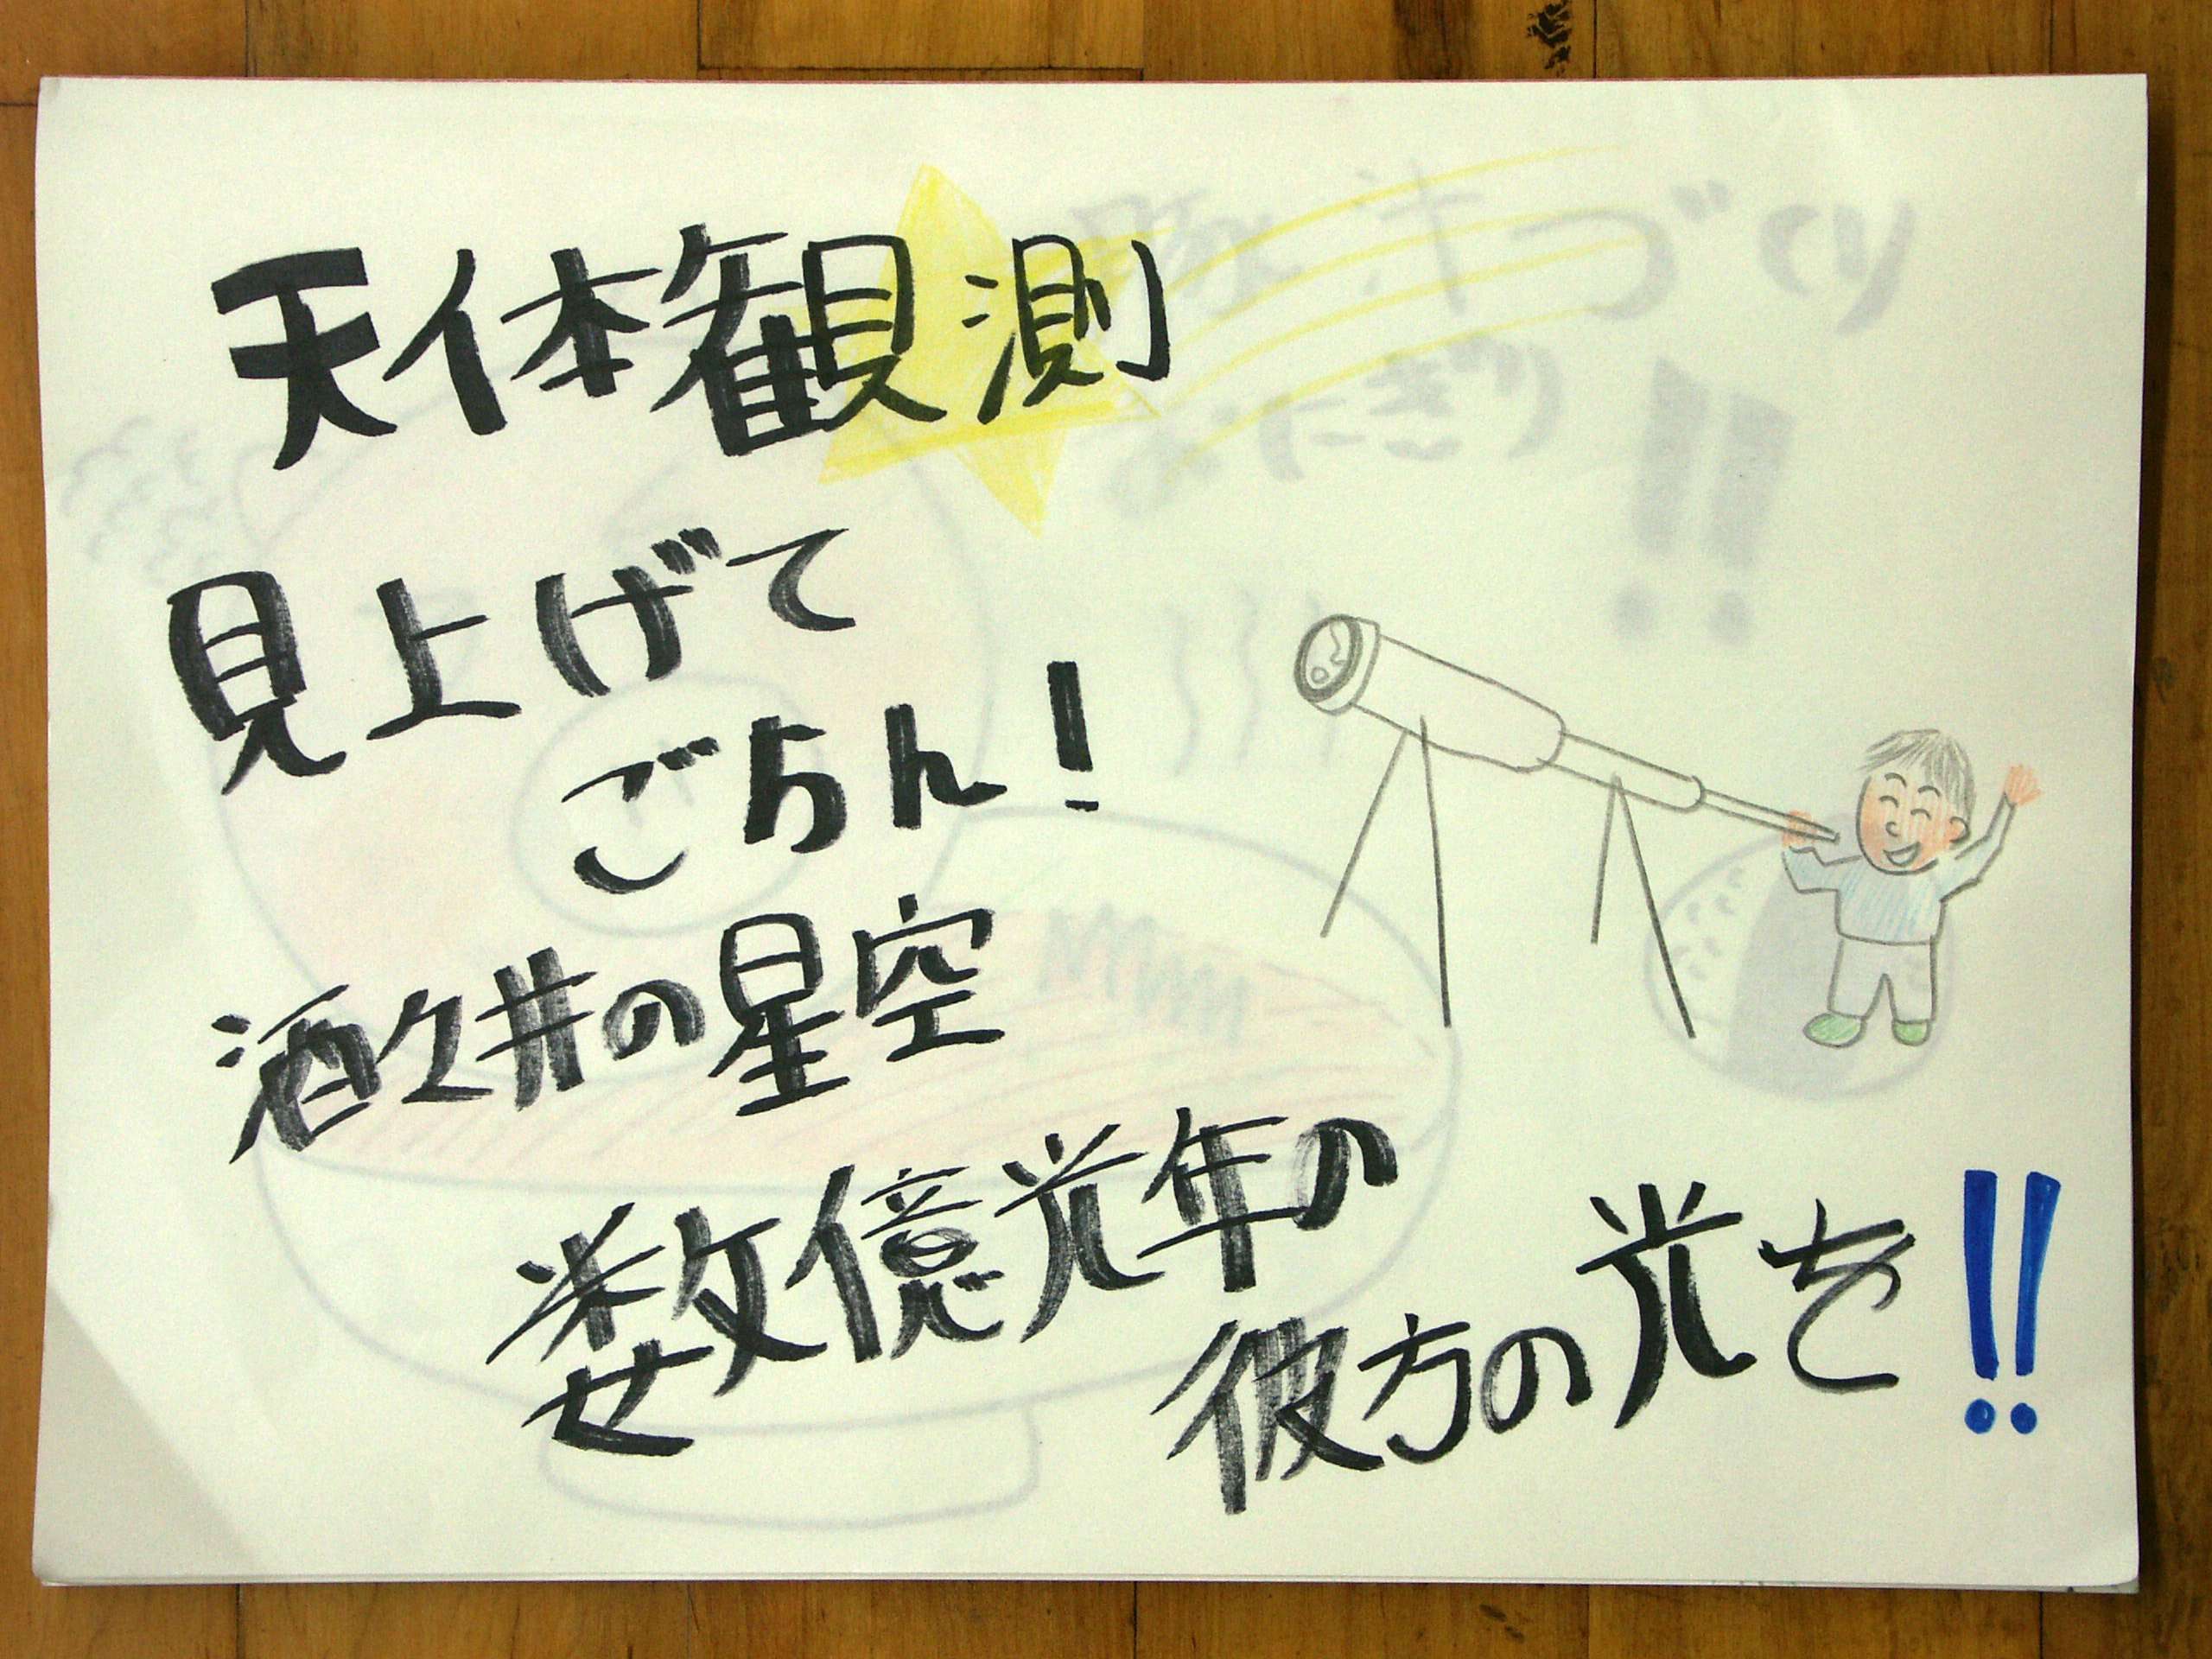 天体観測
見上げて
ごらん!
酒々井の星空
数億光年の
彼方の光を!!